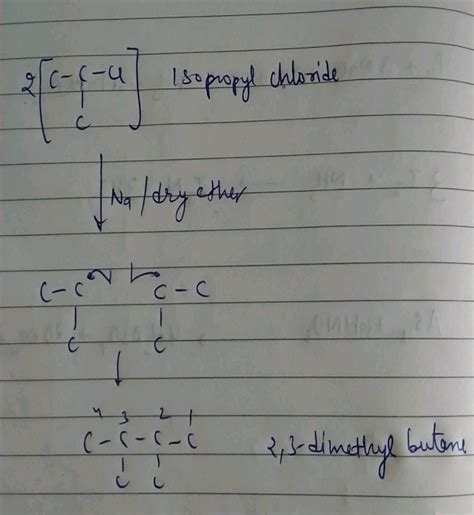 2[C-C-Cl] Isopropyl chloride
C
Na/dry ether
C-C C-C
C C
4 3 2 1
C-C-C-C 2,3-dimethyl butane
C C